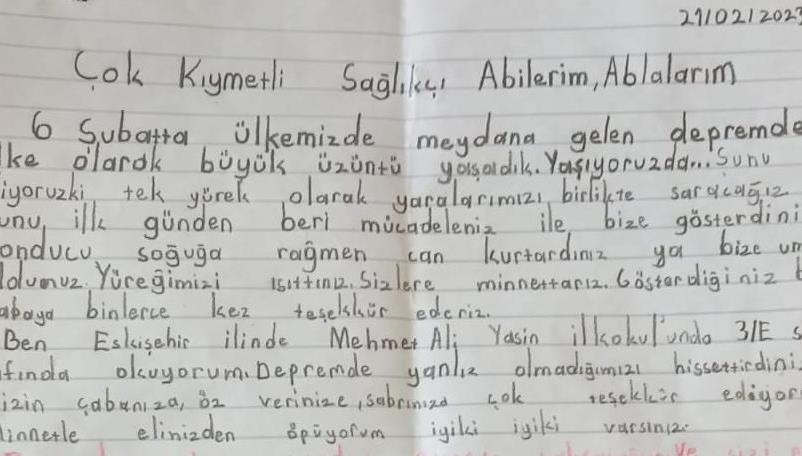 21/02/2023
Çok Kıymetli Sağlıkçı Abilerim, Ablalarım
6 Şubatta ülkemizde meydana gelen depremde
lke olarak büyük üzüntü yaşadık. Yaşıyoruzda... Şunu
iyoruzki tek yürek olarak yaralarımızı birlikte saracağız
unu ilk günden beri mücadeleniz ile bize gösterdini
onducu soğuğa rağmen can kurtardınız ya bize um
ldunuz. Yüreğimizi ısıttınız. Sizlere minnettarız. Gösterdiğiniz
abaya binlerce kez teşekkür ederiz.
Ben Eskişehir ilinde Mehmet Ali Yasin ilkokul'unda 3/E s
fında okuyorum. Depremde yanlız olmadığımızı hissettirdini
izin çabanıza, öz verinize, sabrınıza çok teşekkür ediyor
innetle elinizden öpüyorum iyiki iyiki varsınız.
ve sizi